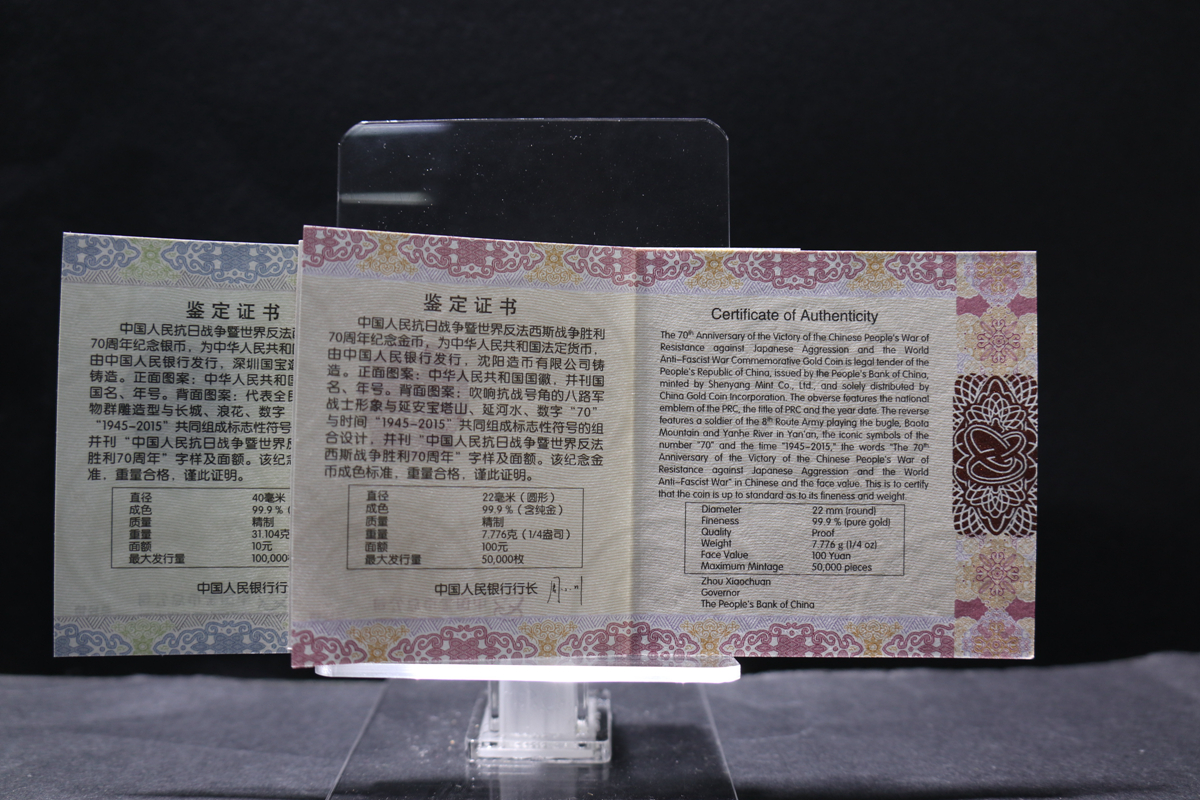 鉴定证书
中国人民抗日战争暨世界反法
70周年纪念银币，为中华人民共和
由中国人民银行发行，深圳国宝造
铸造。正面图案：中华人民共和国
国名、年号。背面图案：代表全民
物群雕造型与长城、浪花、数字
“1945-2015”共同组成标志性符号
并刊“中国人民抗日战争暨世界反
胜利70周年”字样及面额。该纪念
准，重量合格，谨此证明。
直径 40毫米
成色 99.9％（
质量 精制
重量 31.104克
面额 10元
最大发行量 100,000
中国人民银行行
鉴定证书
中国人民抗日战争暨世界反法西斯战争胜利
70周年纪念金币，为中华人民共和国法定货币，
由中国人民银行发行，沈阳造币有限公司铸
造。正面图案：中华人民共和国国徽，并刊国
名、年号。背面图案：吹响抗战号角的八路军
战士形象与延安宝塔山、延河水、数字“70”
与时间“1945-2015”共同组成标志性符号的组
合设计，并刊“中国人民抗日战争暨世界反法
西斯战争胜利70周年”字样及面额。该纪念金
币成色标准，重量合格，谨此证明。
直径 22毫米（圆形）
成色 99.9％（含纯金）
质量 精制
重量 7.776克（1/4盎司）
面额 100元
最大发行量 50,000枚
中国人民银行行长
Certificate of Authenticity
The 70th Anniversary of the Victory of the Chinese People's War of
Resistance against Japanese Aggression and the World
Anti-Fascist War Commemorative Gold Coin is legal tender of the
People's Republic of China, issued by the People's Bank of China,
minted by Shenyang Mint Co., Ltd., and solely distributed by
China Gold Coin Incorporation. The obverse features the national
emblem of the PRC, the title of PRC and the year date. The reverse
features a soldier of the 8th Route Army playing the bugle, Baota
Mountain and Yanhe River in Yan'an, the iconic symbols of the
number "70" and the time "1945-2015," the words "The 70th
Anniversary of the Victory of the Chinese People's War of
Resistance against Japanese Aggression and the World
Anti-Fascist War" in Chinese and the face value. This is to certify
that the coin is up to standard as to its fineness and weight.
Diameter 22 mm (round)
Fineness 99.9 % (pure gold)
Quality Proof
Weight 7.776 g (1/4 oz)
Face Value 100 Yuan
Maximum Mintage 50,000 pieces
Zhou Xiaochuan
Governor
The People's Bank of China